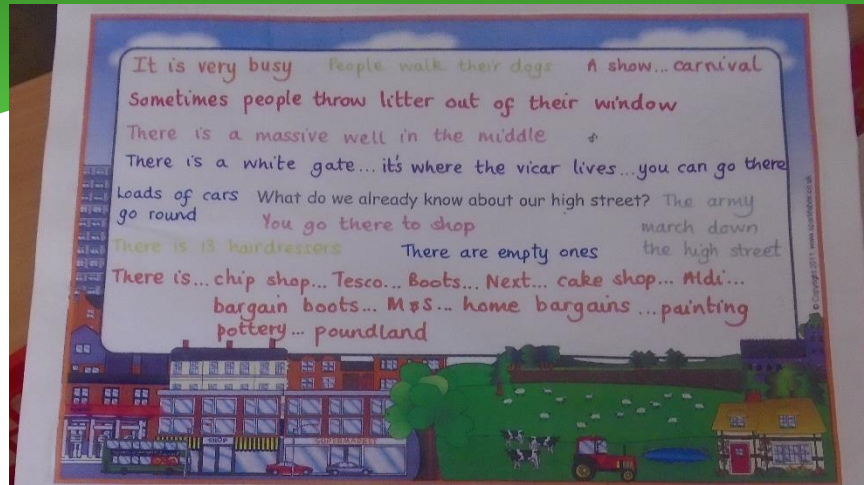 It is very busy People walk their dogs A show... carnival
Sometimes people throw litter out of their window
There is a massive well in the middle
There is a white gate... it's where the vicar lives... you can go there
Loads of cars go round
What do we already know about our high street?
The army march down the high street
You go there to shop
There is 13 hairdressers
There are empty ones
There is... chip shop... Tesco... Boots... Next... cake shop... Aldi...
bargain boots... M&S... home bargains ...painting
pottery... poundland
SHOP
SUPERMARKET
© Copyright 2011, www.sparklebox.co.uk